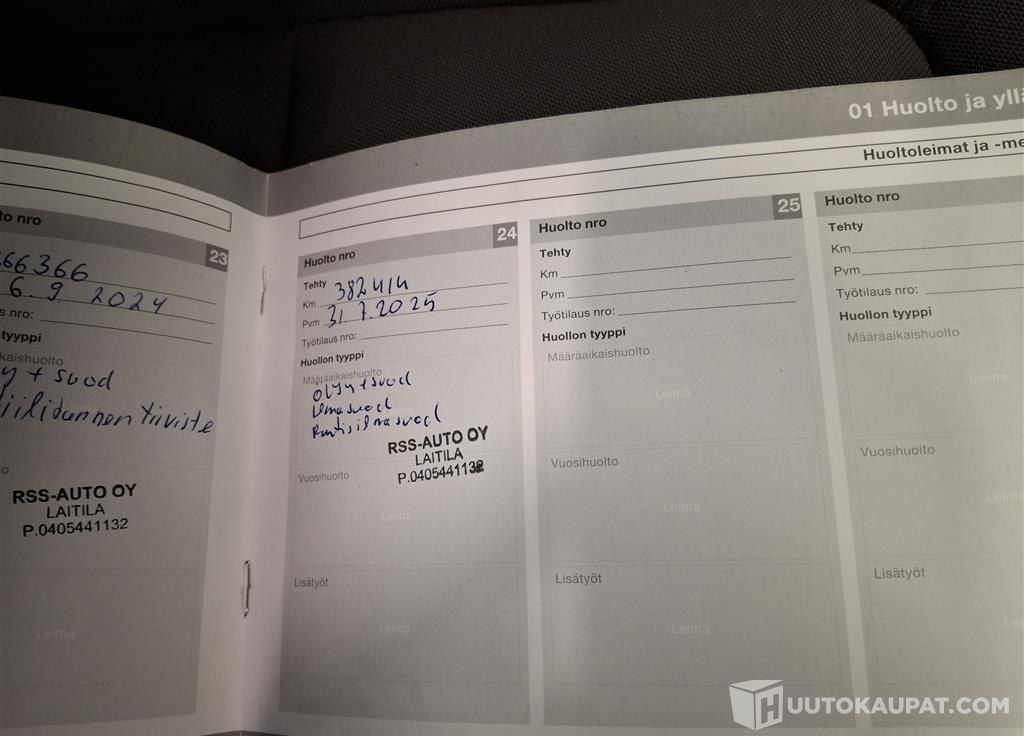 01 Huolto ja yllä
Huoltoleimat ja -me
to nro
23
66366
6.9.2024
s nro:
tyyppi
kaishuolto
y + suod
iilidunnen tiiviste
o
RSS-AUTO OY
LAITILA
P.0405441132
Leima
Huolto nro
24
Tehty
Km 382414
Pvm 31.7.2025
Työtilaus nro:
Huollon tyyppi
Määräaikaishuolto
öljy + suod
ilmasuod
Raitisilmasuod
RSS-AUTO OY
LAITILA
P.0405441132
Vuosihuolto
Leima
Lisätyöt
Leima
Huolto nro
25
Tehty
Km
Pvm
Työtilaus nro:
Huollon tyyppi
Määräaikaishuolto
Leima
Vuosihuolto
Leima
Lisätyöt
Leima
Huolto nro
Tehty
Km
Pvm
Työtilaus nro:
Huollon tyyppi
Määräaikaishuolto
Leima
Vuosihuolto
Leima
Lisätyöt
Le
HUUTOKAUPAT.COM